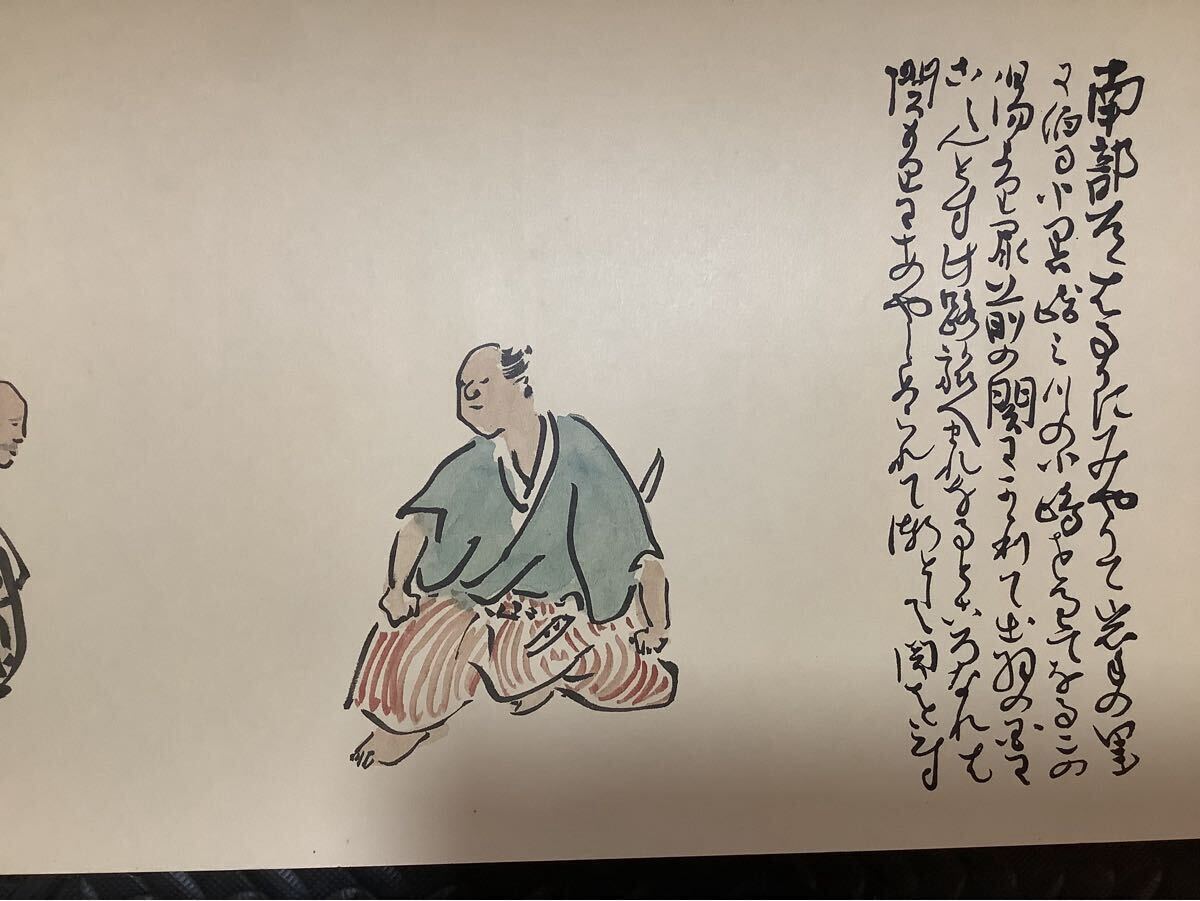 南部道はるかにみやりて岩手の里
に泊る小黒崎みつの小嶋を過てなるこの
湯より尿前の関にかゝりて出羽の国に
こえんとす此路旅人まれなるところなれば
関もりにあやしめられて漸として関をこす